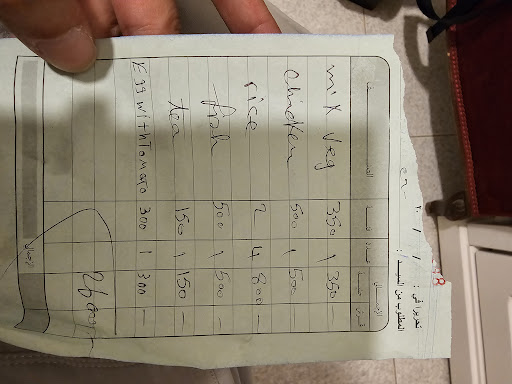 تحريرا في : / / ٢٠
المطلوب من السيد :
mix veg 350 1 350 —
chicken 500 1 500 —
rice 2 4 800 —
fish 500 1 500 —
tea 150 1 150 —
Egg with Tomato 300 1 300 —
2600